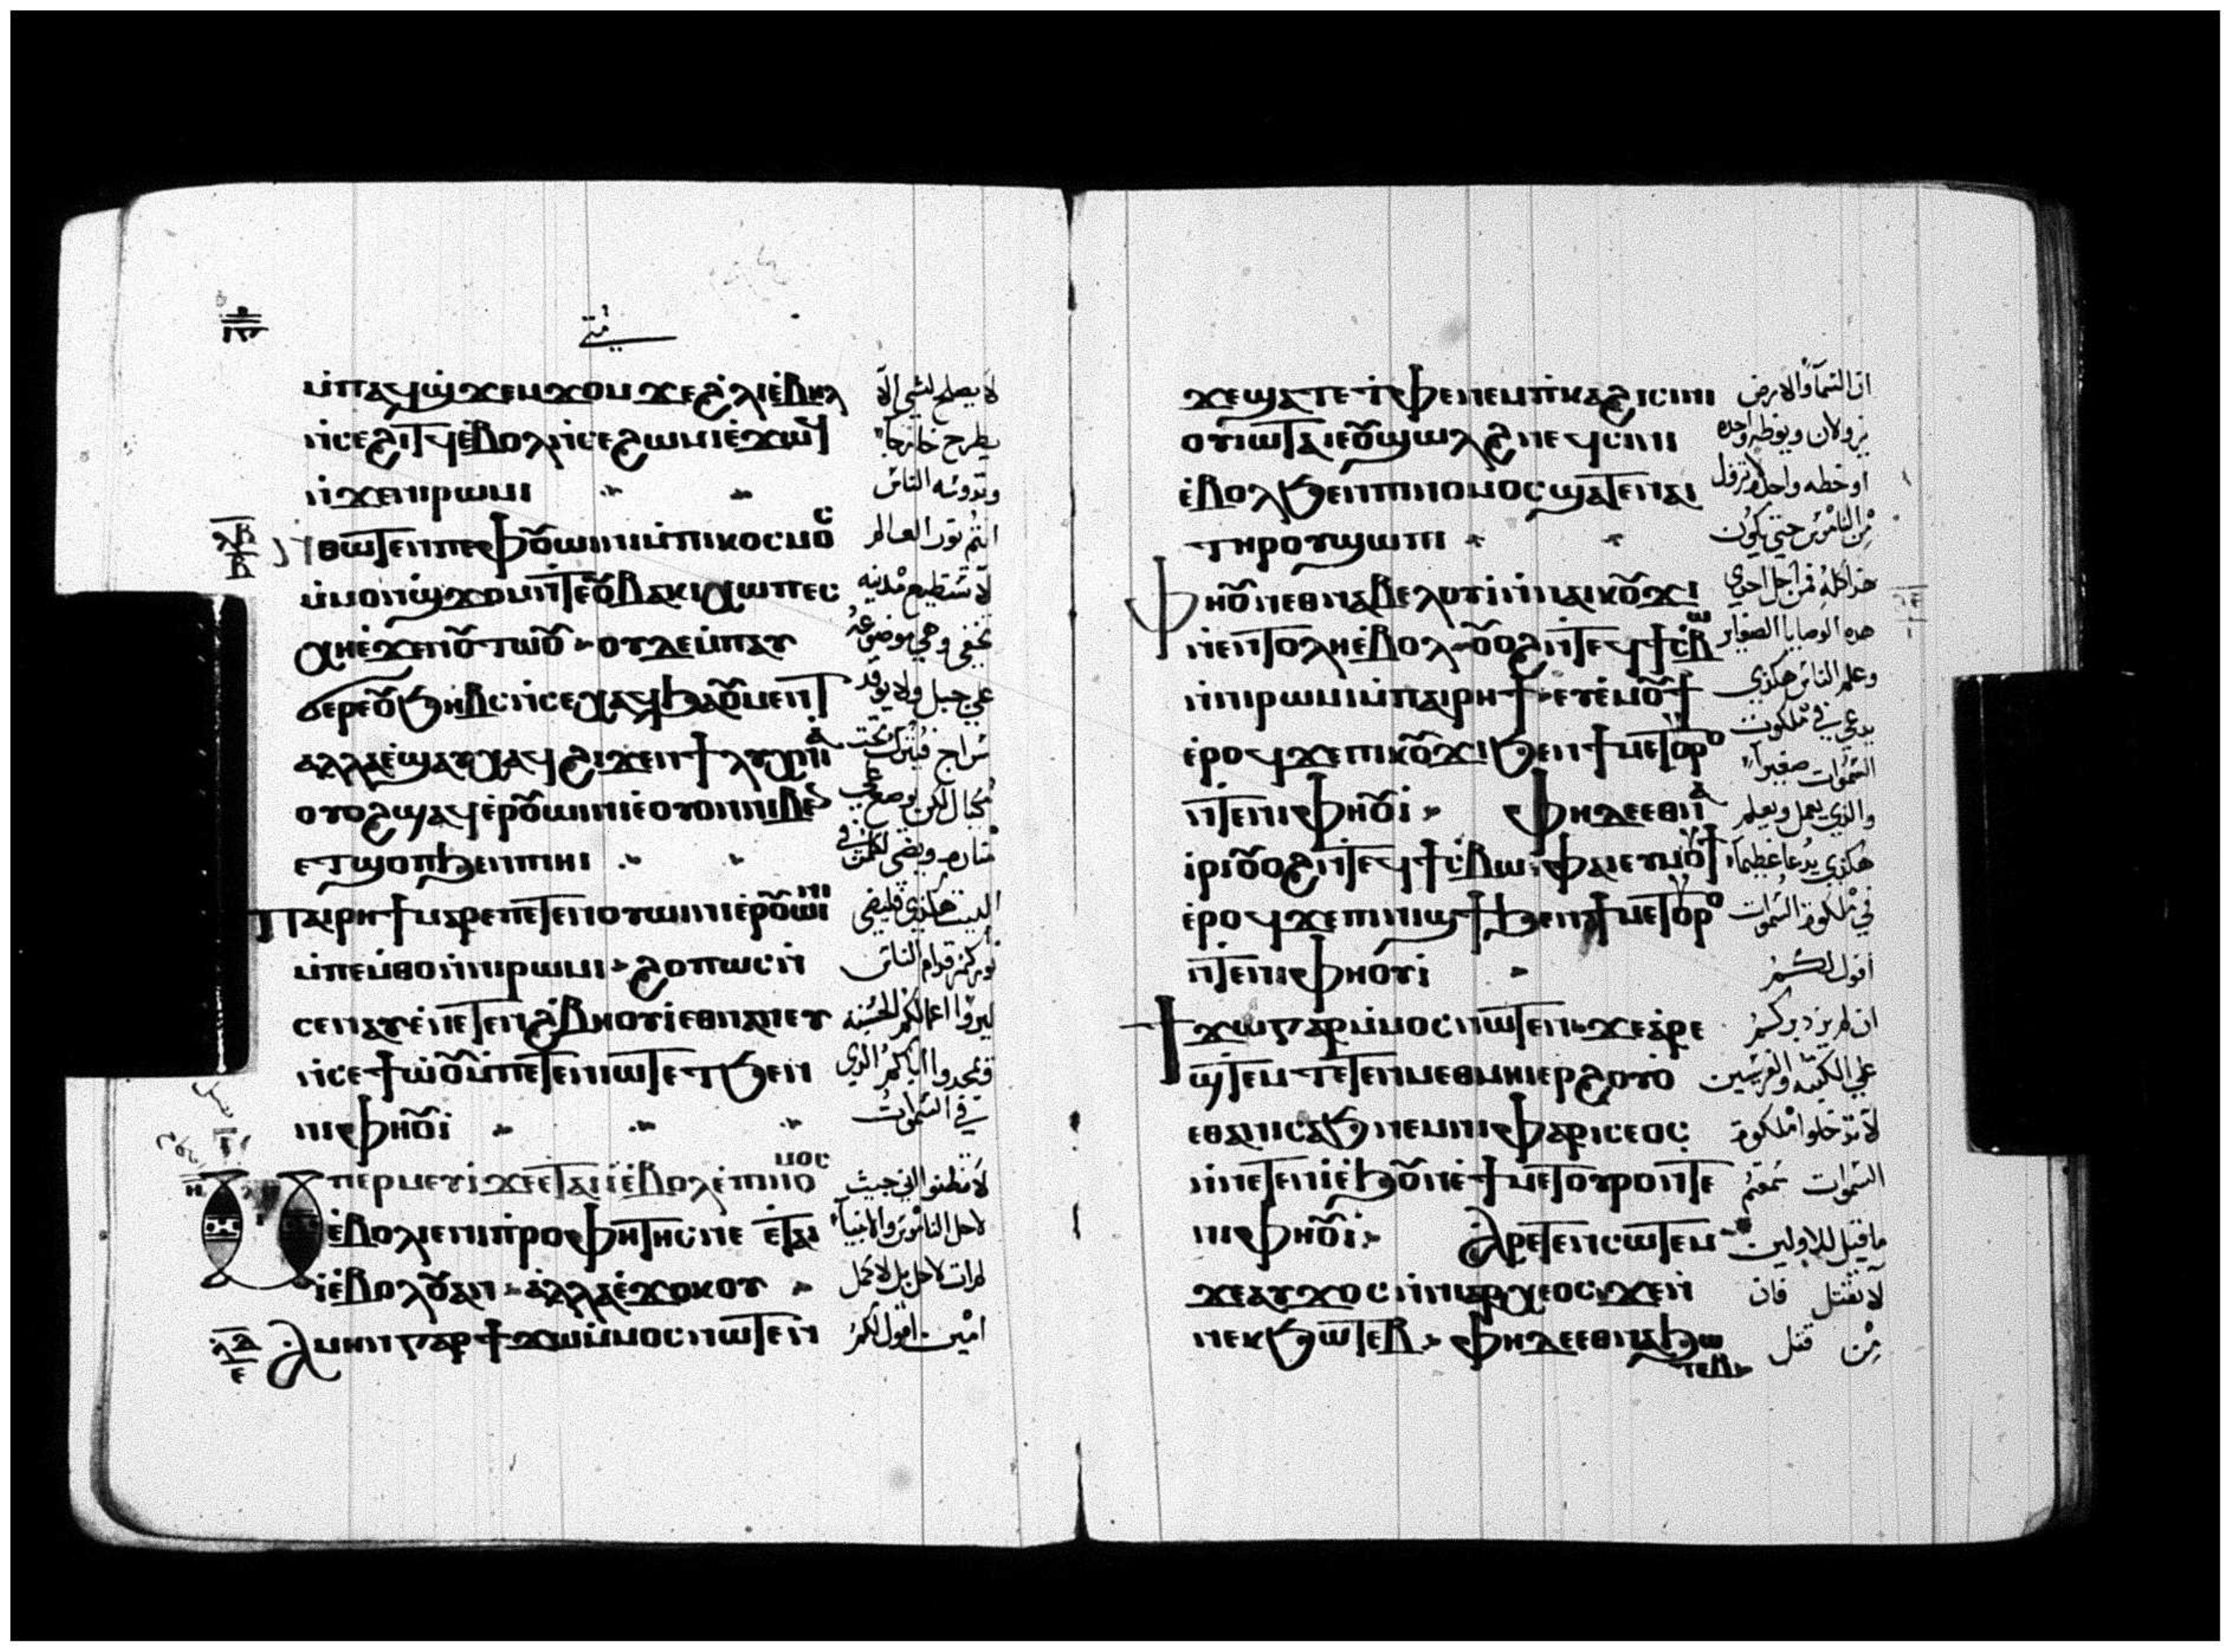 متى
ⲙ̀ⲡⲁϥϣ̀ϫⲉⲙϫⲟⲙ ϫⲉϩ̀ⲗⲓⲉ̀ⲃⲏⲗ
ⲛ̀ⲥⲉϩⲓⲧϥⲉ̀ⲃⲟⲗⲛ̀ⲥⲉϩⲱⲙⲓⲉ̀ϫⲱϥ
ⲛ̀ϫⲉⲛⲓⲣⲱⲙⲓ
ⲛⲑⲱⲧⲉⲛⲡⲉⲫⲟⲩⲱⲓⲛⲓⲙ̀ⲡⲓⲕⲟⲥⲙⲟⲥ
ⲙ̀ⲙⲟⲛϣ̀ϫⲟⲙⲛ̀ⲧⲉⲟⲩⲃⲁⲕⲓⲭⲱⲡⲉⲥ
ⲭⲏⲉ̀ϫⲉⲛⲟⲩⲧⲱⲟⲩ ⲟⲩⲇⲉⲙ̀ⲡⲁⲩ
ϭⲉⲣⲉⲟⲩϧⲏⲃⲥⲛ̀ⲥⲉⲭⲁϥϧⲁⲟⲩⲙⲉⲛⲧ
ⲁⲗⲗⲁⲉ̀ϣⲁⲩⲭⲁϥϩⲓϫⲉⲛϯⲗⲩⲭⲛⲓⲁ̀
ⲟⲩⲟϩϣⲁϥⲉⲣⲟⲩⲱⲓⲛⲓⲉ̀ⲟⲩⲟⲛⲛⲓⲃⲉⲛ
ⲉⲧϣⲟⲡϧⲉⲛⲡⲓⲏⲓ
ⲡⲁⲓⲣⲏϯⲙⲁⲣⲉⲡⲉⲧⲉⲛⲟⲩⲱⲓⲛⲓⲉⲣⲟⲩⲱⲓⲛⲓ
ⲙ̀ⲡⲉⲙ̀ⲑⲟⲛ̀ⲛⲓⲣⲱⲙⲓ ϩⲟⲡⲱⲥⲛ̀
ⲥⲉⲛⲁⲩⲉ̀ⲛⲉⲧⲉⲛϩ̀ⲃⲏⲟⲩⲓⲉⲑⲛⲁⲛⲉⲩ
ⲛ̀ⲥⲉϯⲱ̀ⲟⲩⲙ̀ⲡⲉⲧⲉⲛⲓⲱⲧⲉⲧϧⲉⲛ
ⲛⲓⲫⲏⲟⲩⲓ̀
ⲡⲉⲣⲙⲉⲩⲓ̀ϫⲉⲉⲧⲁⲓⲓ̀ⲉ̀ⲃⲟⲗⲉ̀ⲡⲓⲛⲟⲙⲟⲥ
ⲉ̀ⲃⲟⲗⲓⲉⲛⲓⲡ̀ⲣⲟⲫⲏⲧⲏⲥⲛⲉ ⲉ̀ⲧⲁⲓ
ⲓ̀ⲉ̀ⲃⲟⲗⲟⲩⲁⲛ ⲁⲗⲗⲁⲉ̀ϫⲟⲕⲟⲩ
ⲁⲙⲏⲛⲅⲁⲣϯϫⲱⲙ̀ⲙⲟⲥⲛⲱⲧⲉⲛ
لا يصلح لشي الا
يطرح خارجا
وتدوسه الناس
انتم نور العالم
لا تستطيع مدينه
تخفى وهي موضوعه
على جبل ولا يوقد
سراج فيترك تحت
مكيال لكن يوضع على
مناره ويضى لكلمن في
البيت هكذي فليضى
نوركم قدام الناس
ليروا اعمالكم الحسنه
فيمجدوا اباكم الذي
في السموات
لا تظنوا اني جيت
لاحل الناموس والانبيا
لم ات لاحل بل لاكمل
امين اقول لكم
ϫⲉϣⲁⲧⲉⲧ̀ⲫⲉⲛⲉⲙⲡ̀ⲕⲁϩⲓⲥⲓⲛⲓ
ⲟⲩⲓⲱⲧⲁⲓⲉⲟⲩϣⲱⲗϩⲛⲉϥⲥⲓⲛⲓ
ⲉ̀ⲃⲟⲗϧⲉⲛⲡⲓⲛⲟⲙⲟⲥϣⲁⲧⲉⲛⲁⲓ
ⲧⲏⲣⲟⲩϣⲱⲡⲓ
ⲫⲏⲟⲩⲛⲉⲑⲛⲁⲃⲉⲗⲟⲩⲓ̀ⲛ̀ⲛⲁⲓⲕⲟⲩϫⲓ
ⲛ̀ⲉⲛⲧⲟⲗⲏⲉ̀ⲃⲟⲗ ⲟⲩⲟϩⲛ̀ⲧⲉϥϯⲥ̀ⲃⲱ
ⲛ̀ⲛⲓⲣⲱⲙⲓⲙ̀ⲡⲁⲓⲣⲏϯ ⲉⲩⲉ̀ⲙⲟⲩϯ
ⲉ̀ⲣⲟϥϫⲉⲡⲓⲕⲟⲩϫⲓϧⲉⲛϯⲙⲉⲧⲟⲩⲣⲟ
ⲛ̀ⲧⲉⲛⲓⲫⲏⲟⲩⲓ̀ ⲫⲏⲇⲉⲉⲑⲛⲁ
ⲓ̀ⲣⲓⲟⲩⲟϩⲛ̀ⲧⲉϥϯⲥ̀ⲃⲱ ⲫⲁⲓⲉⲩⲙⲟⲩϯ
ⲉ̀ⲣⲟϥϫⲉⲡⲓⲛⲓϣϯϧⲉⲛϯⲙⲉⲧⲟⲩⲣⲟ
ⲛ̀ⲧⲉⲛⲓⲫⲏⲟⲩⲓ
ϯϫⲱⲅⲁⲣⲙ̀ⲙⲟⲥⲛⲱⲧⲉⲛ ϫⲉⲁ̀ⲣⲉ
ϣ̀ⲧⲉⲙⲧⲉⲧⲉⲛⲙⲉⲑⲙⲏⲓⲉⲣϩⲟⲩⲟ̀
ⲉⲑⲁⲛⲓⲥⲁϧⲛⲉⲙⲛⲓⲫⲁⲣⲓⲥⲉⲟⲥ
ⲛ̀ⲛⲉⲧⲉⲛⲓ̀ⲉ̀ϧⲟⲩⲛⲉ̀ϯⲙⲉⲧⲟⲩⲣⲟⲛ̀ⲧⲉ
ⲛⲓⲫⲏⲟⲩⲓ̀ ⲁⲣⲉⲧⲉⲛⲥⲱⲧⲉⲙ
ϫⲉⲁⲩϫⲟⲥⲛ̀ⲛⲓⲁⲣⲭⲉⲟⲥϫⲉⲛ̀
ⲛⲉⲕϧⲱⲧⲉⲃ ⲫⲏⲇⲉⲉⲑⲛⲁϧⲱ
ⲧⲉⲃ
ان السما والارض
يزولان ويوطه واحده
او خطه واحده لا تزول
من الناموس حتى يكون
هذا كله فمن احل احدي
هده الوصايا الصغار
وعلم الناس هكذي
يدعى في ملكوت
السموات صغيرا
والذي يعمل ويعلم
هكذي يدعا عظيما
في ملكوة السموات
اقول لكم
ان لم يزد بركم
على الكتبه والفريسين
لا تدخلوا ملكوة
السموات سمعتم
ما قيل للاولين
لا تقتل فان
من قتل